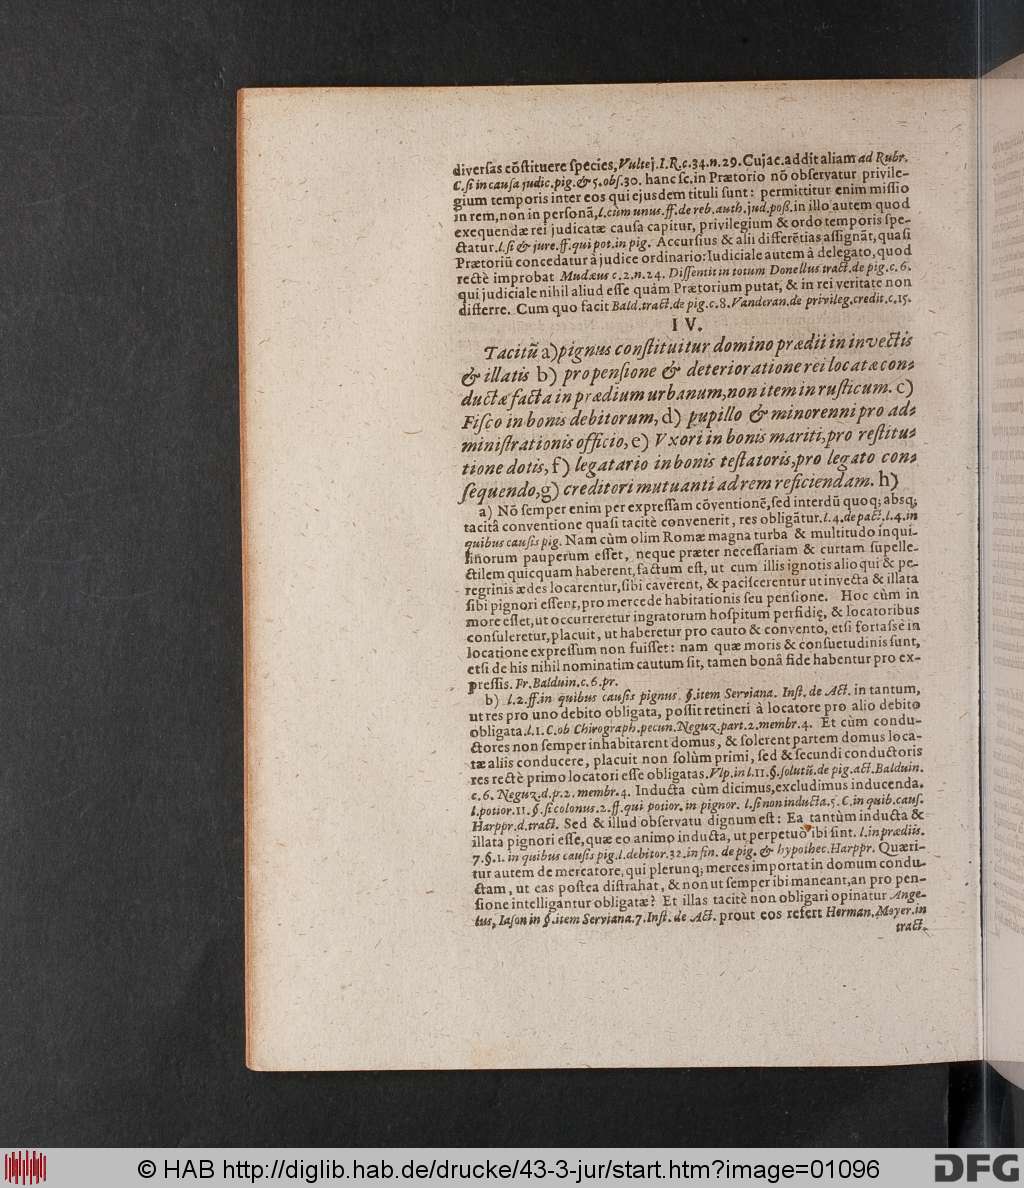 diversas cõstituere species, Vultej. I.R.c.34.n.29. Cujac. addit aliam ad Rubr.
C. si in causa judic. pig. & 5. obs. 30. hanc sc. in Prætorio nõ observatur privile-
gium temporis inter eos qui ejusdem tituli sunt: permittitur enim missio
in rem, non in personã, l. cùm unus. ff. de reb. auth. jud. poß. in illo autem quod
exequendæ rei judicatæ causa capitur, privilegium & ordo temporis spe-
ctatur. l. si & jure. ff. qui pot. in pig. Accursius & alii differẽtias assignãt, quasi
Prætoriũ concedatur â judice ordinario: Iudiciale autem à delegato, quod
rectè improbat Mudæus c.2.n.24. Dissentit in totum Donellus tract. de pig. c. 6.
qui judiciale nihil aliud esse quàm Prætorium putat, & in rei veritate non
differre. Cum quo facit Bald. tract. de pig. c. 8. Vanderan. de privileg. credit. c. 15.
IV.
Tacitũ a) pignus constituitur domino prædii in invectis
& illatis b) pro pensione & deterioratione rei locatæ con-
ductæ facta in prædium urbanum, non item in rusticum. c)
Fisco in bonis debitorum, d) pupillo & minorenni pro ad-
ministrationis officio, e) Vxori in bonis mariti, pro restitu-
tione dotis, f) legatario in bonis testatoris, pro legato con-
sequendo, g) creditori mutuanti ad rem reficiendam. h)
a) Nõ semper enim per expressam cõventionẽ, sed interdũ quoq; absq;
tacitâ conventione quasi tacitè convenerit, res obligãtur. l. 4. de pact. l. 4. in
quibus causis pig. Nam cùm olim Romæ magna turba & multitudo inqui-
linorum pauperum esset, neque præter necessariam & curtam supelle-
ctilem quicquam haberent, factum est, ut cum illis ignotis alioqui & pe-
regrinis ædes locarentur, sibi caverent, & paciscerentur ut invecta & illata
sibi pignori essent, pro mercede habitationis seu pensione. Hoc cùm in
more esset, ut occurreretur ingratorum hospitum perfidię, & locatoribus
consuleretur, placuit, ut haberetur pro cauto & convento, etsi fortassè in
locatione expressum non fuisset: nam quæ moris & consuetudinis sunt,
etsi de his nihil nominatim cautum sit, tamen bonâ fide habentur pro ex-
pressis. Fr. Balduin. c. 6. pr.
b) l. 2. ff. in quibus causis pignus. §. item Serviana. Inst. de Act. in tantum,
ut res pro uno debito obligata, possit retineri à locatore pro alio debito
obligata. l. 1. C. ob Chirograph. pecun. Neguz. part. 2. membr. 4. Et cùm condu-
ctores non semper inhabitarent domus, & solerent partem domus loca-
tæ aliis conducere, placuit non solùm primi, sed & secundi conductoris
res rectè primo locatori esse obligatas. Vlp. in l. 11. §. solutũ. de pig. act. Balduin.
c. 6. Neguz. d. p. 2. membr. 4. Inducta cùm dicimus, excludimus inducenda.
l. potior. 11. §. si colonus. 2. ff. qui potior. in pignor. l. si non inducta. 5. C. in quib. caus.
Harppr. d. tract. Sed & illud observatu dignum est: Ea tantùm inducta &
illata pignori esse, quæ eo animo inducta, ut perpetuò ibi sint. l. in prædiis.
7. §. 1. in quibus causis pig. l. debitor. 32. in fin. de pig. & hypothec. Harppr. Quæri-
tur autem de mercatore, qui plerunq; merces importat in domum condu-
ctam, ut eas postea distrahat, & non ut semper ibi maneant, an pro pen-
sione intelligantur obligatæ? Et illas tacitè non obligari opinatur Ange-
lus, Iason in §. item Serviana. 7. Inst. de Act. prout eos refert Herman. Moyer. in
tract.
© HAB http://diglib.hab.de/drucke/43-3-jur/start.htm?image=01096
DFG